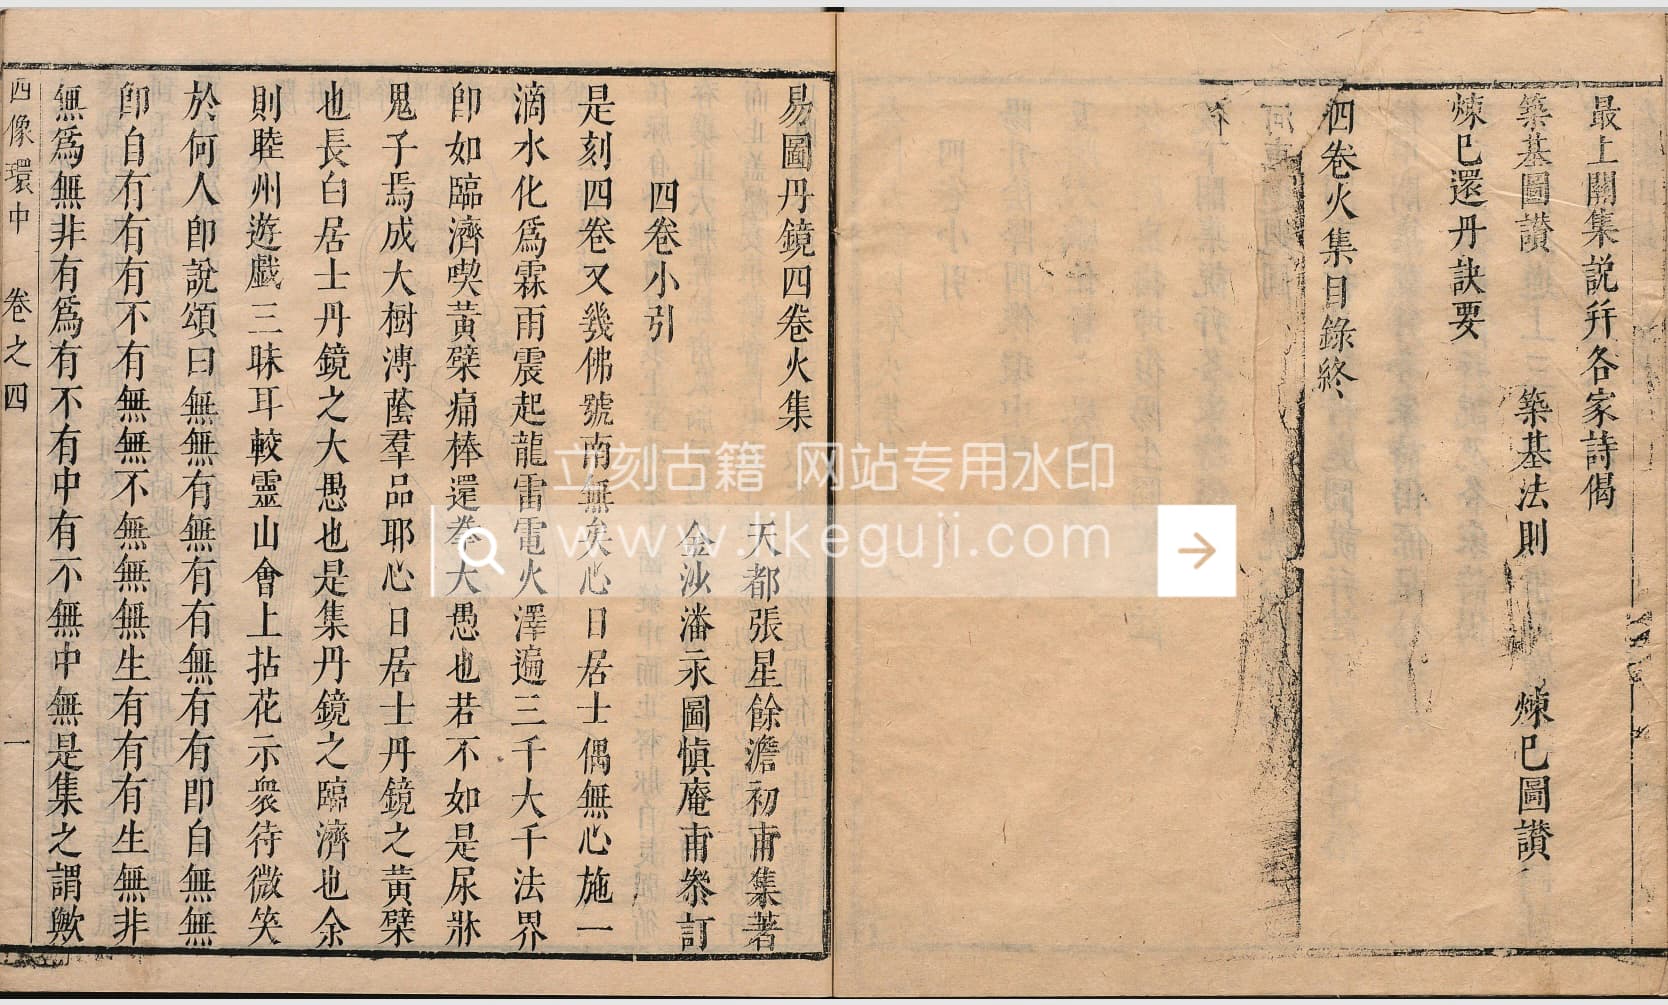 最上關集説幷各家詩偈
築基圖讃 築基法則 煉巳圖讃
煉巳還丹訣要
四卷火集目錄終
易圖丹鏡四卷火集
天都張星餘澹初甫集著
四卷小引 金沙潘永圖愼庵甫叅訂
是刻四卷又幾佛號南無矣心日居士偶無心施一
滴水化爲霖雨震起龍雷電火澤遍三千大千法界
卽如臨濟喫黃檗痛棒還拳大愚也若不如是尿牀
鬼子焉成大樹溥蔭羣品耶心日居士丹鏡之黃檗
也長白居士丹鏡之大愚也是集丹鏡之臨濟也余
則睦州遊戲三昧耳較靈山會上拈花示衆待微笑
於何人卽說頌曰無無有無有有無有有卽自無無
卽自有有有不有無無不無無無生有有有生無非
無爲無非有爲有不有中有不無中無是集之謂歟
四像環中 卷之四 一
立刻古籍 网站专用水印
www.likeguji.com